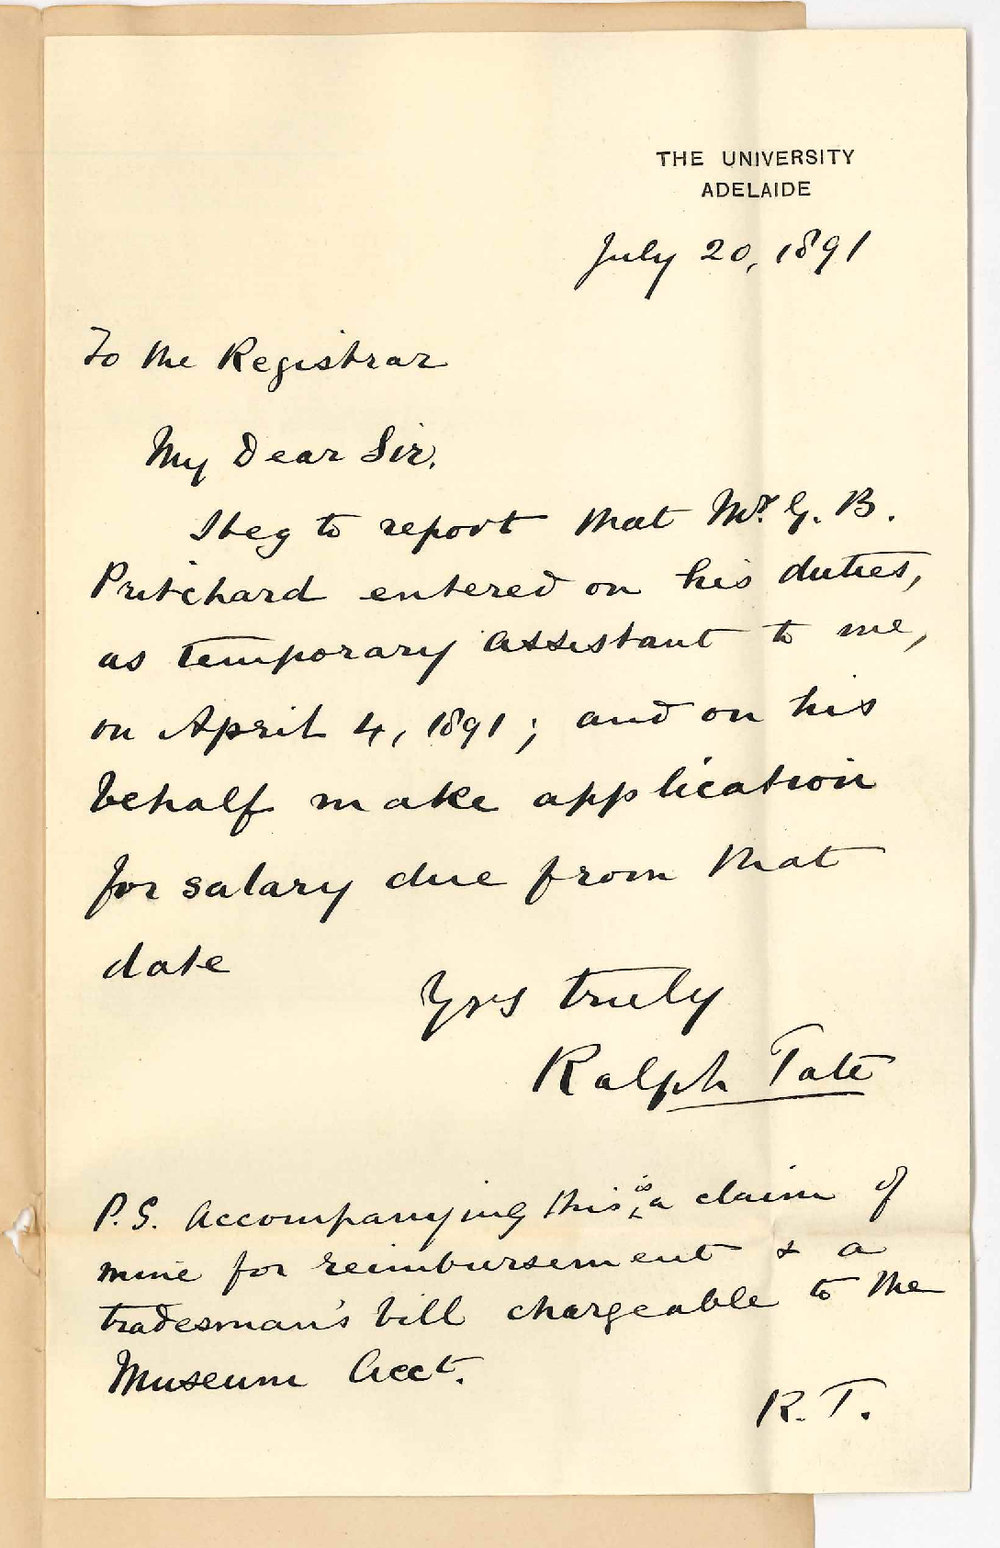 THE UNIVERSITY
ADELAIDE
July 20, 1891
To the Registrar
My Dear Sir.
I beg to report that Mr. G. B.
Pritchard entered on his duties,
as temporary assistant to me,
on April 4, 1891; and on his
behalf make application
for salary due from that
date
Yrs truly
Ralph Tate
P.S. Accompanying this is a claim of
mine for reimbursement & a
tradesman's bill chargeable to the
Museum Acct.
R. T.